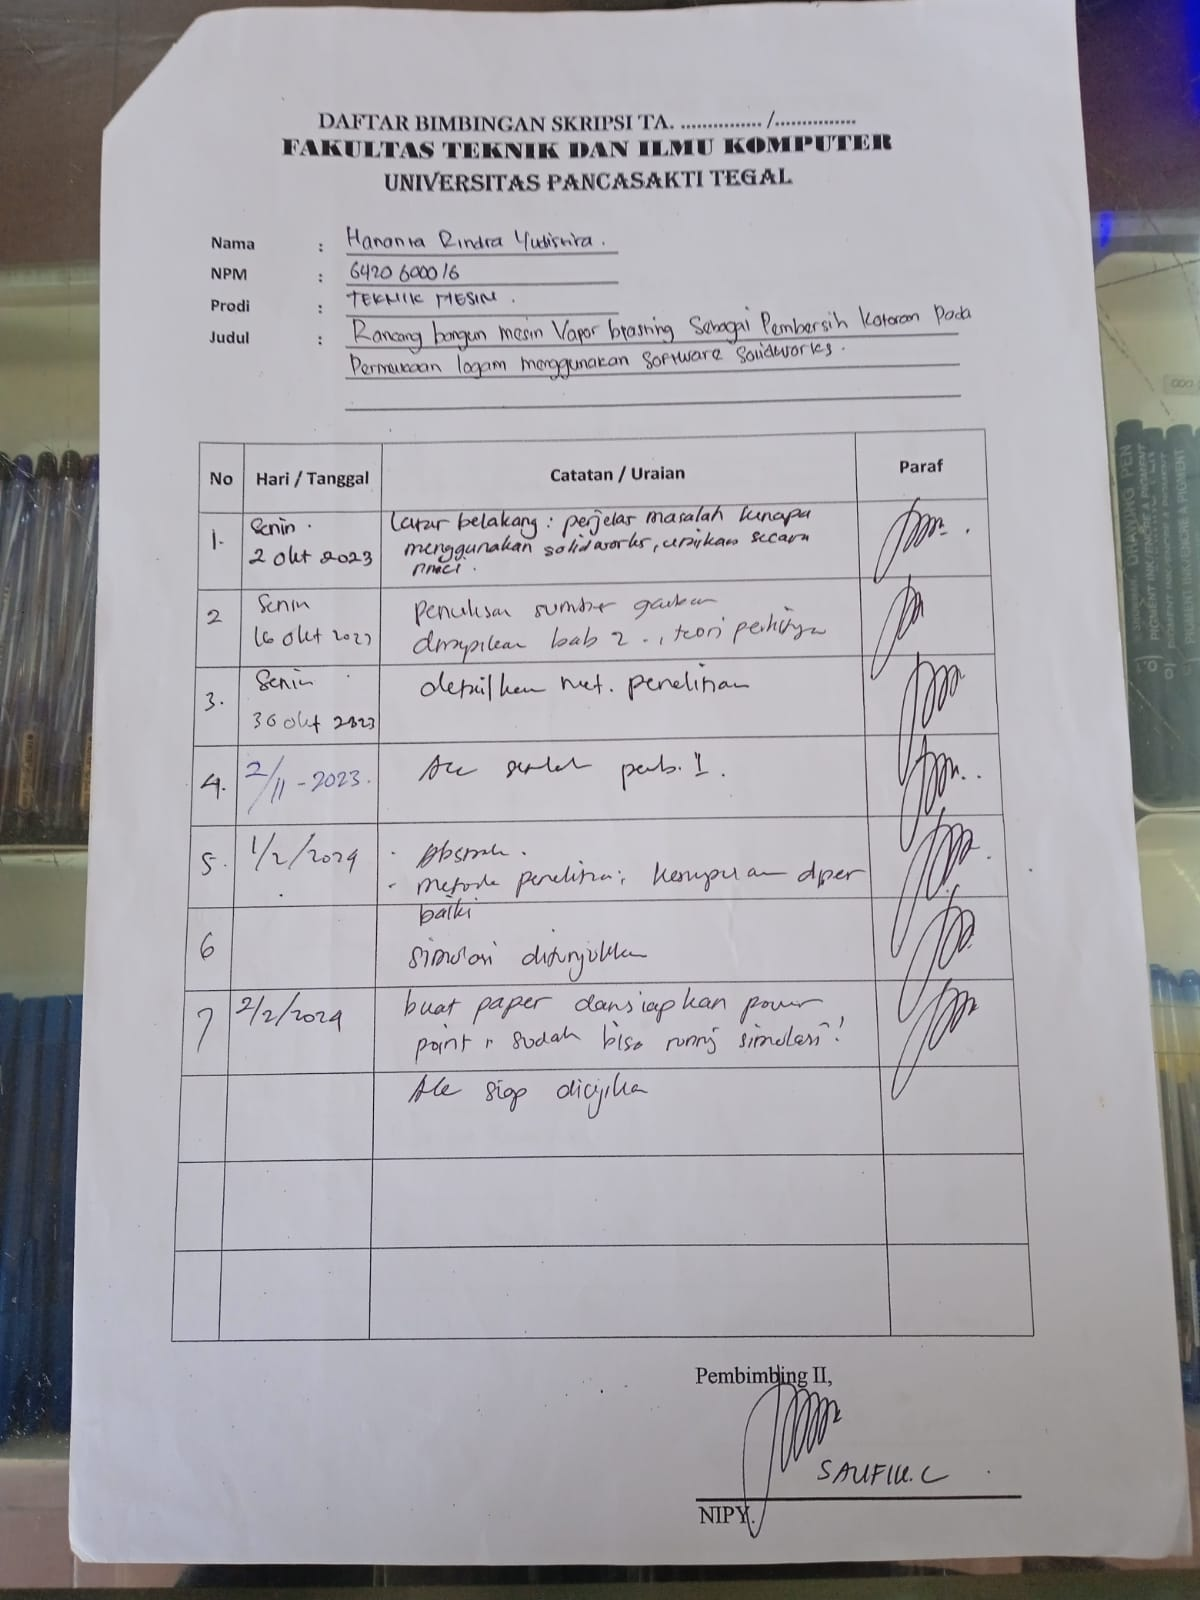 DAFTAR BIMBINGAN SKRIPSI TA. ............... /...............
FAKULTAS TEKNIK DAN ILMU KOMPUTER
UNIVERSITAS PANCASAKTI TEGAL
Nama : Hanania Rindra Yudistira.
NPM : 6420600016
Prodi : TEKNIK MESIN.
Judul : Rancang bangun mesin Vapor blasting Sebagai Pembersih Kotoran Pada
Permukaan logam menggunakan Software Solidworks.
No Hari / Tanggal Catatan / Uraian Paraf
1. Senin. Latar belakang : perjelas masalah kenapa
2 Okt 2023 menggunakan solidworks, uraikan secara
rinci.
2 Senin Penulisan sumber gambar
16 Okt 2023 bab 2., teori
3. Senin detailkan met. penelitian
30 Okt 2023
4. 2/11-2023. Acc pemb. I.
5. 1/2/2024 - Abstrak.
- metode penelitian, kesimpulan diper
baiki
6 simulasi ditunjukkan
7 2/2/2024 buat paper dan siapkan power
point, sudah bisa running simulasi!
Acc siap diujikan
Pembimbing II,
SAUFIK. C
NIPY.